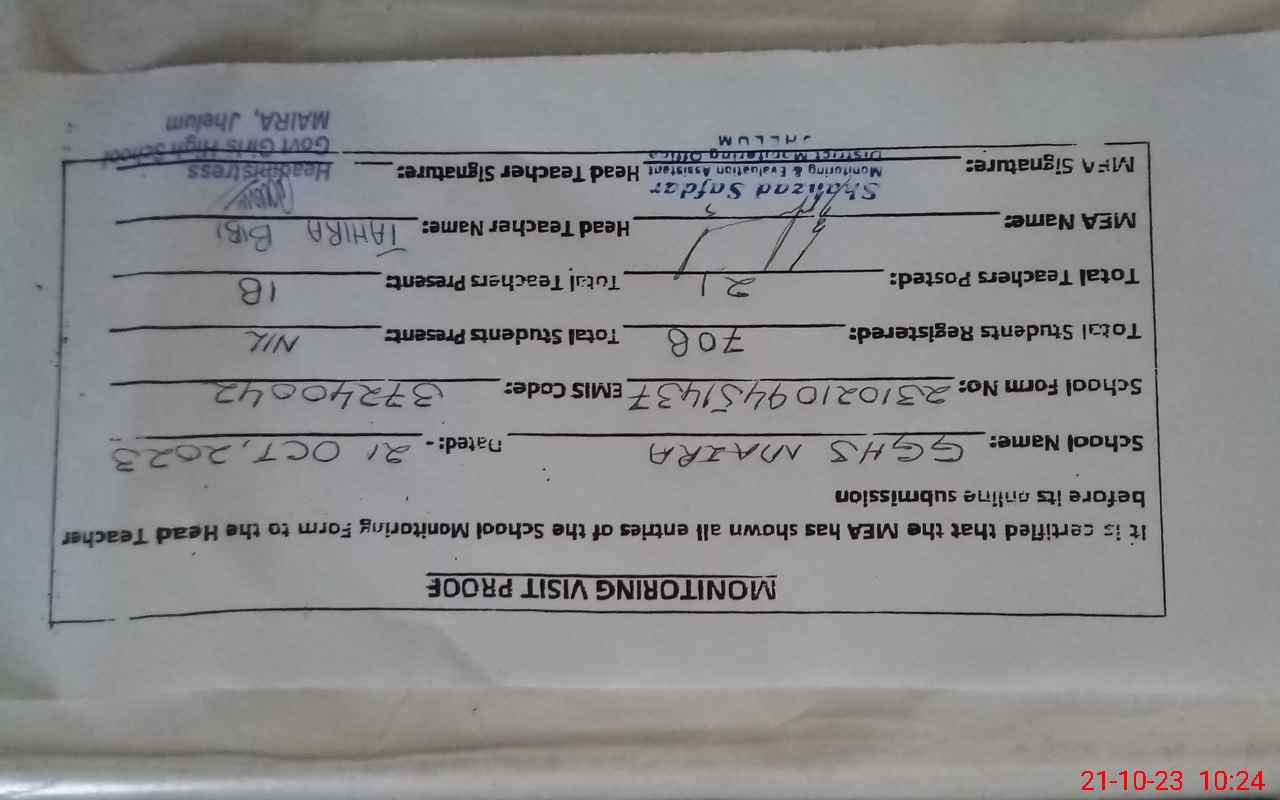 MONITORING VISIT PROOF
It is certified that the MEA has shown all entries of the School Monitoring Form to the Head Teacher
before its online submission
School Name: GGHS MAIRA Dated:- 21 OCT, 2023
School Form No: 23102109451437 EMIS Code: 37240042
Total Students Registered: 708 Total Students Present: NIL
Total Teachers Posted: 21 Total Teachers Present: 18
MEA Name: Head Teacher Name: TAHIRA BIBI
MEA Signature: Head Teacher Signature:
Shahzad Safdar
Monitoring & Evaluation Assistant
District Monitoring Office
JHELUM
Headmistress
Govt Girls High School
MAIRA, Jhelum
21-10-23 10:24